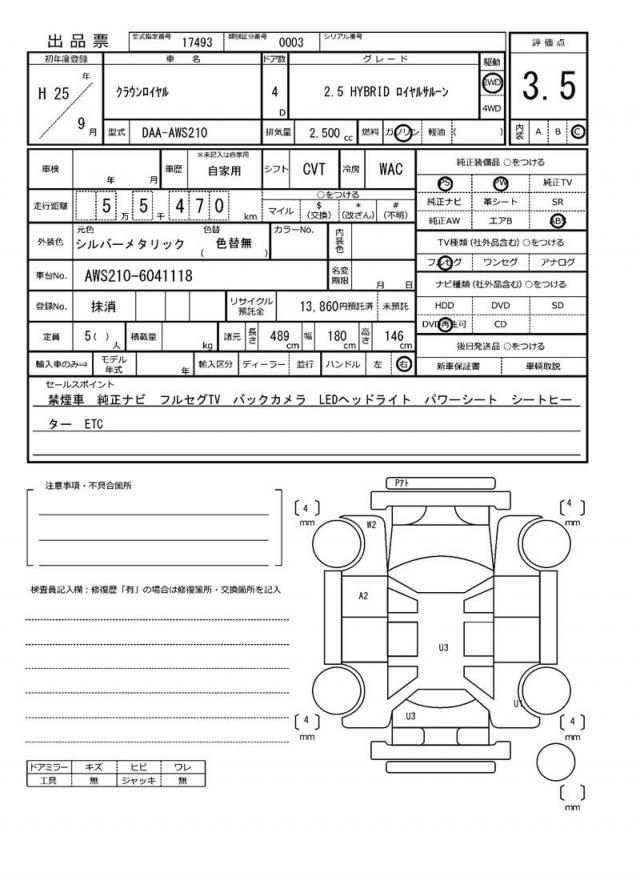 出品票
型式指定番号 17493 類別区分番号 0003 シリアル番号
初年度登録 車名 ドア数 グレード 駆動 評価点
H 25 年 9 月
クラウンロイヤル 4 D 2.5 HYBRID ロイヤルサルーン 2WD 4WD
3.5
型式 DAA-AWS210 排気量 2,500 cc 燃料 ガソリン 軽油 ( ) 内装 A B C
車検 年 月 車歴 ※未記入は自家用 自家用 シフト CVT 冷房 WAC
走行距離 5 万 5 千 4 7 0 km
○をつける
マイル $ (交換) * (改ざん) # (不明)
外装色 元色 シルバーメタリック 色替 ( 色替無 ) カラーNo. 内装色
車台No. AWS210-6041118 名変期限 月 日
登録No. 抹消 リサイクル預託金 13,860円預託済 未預託
定員 5( ) 人 積載量 kg 諸元 長さ 489 cm 幅 180 cm 高さ 146 cm
輸入車のみ⇒ モデル年式 年 輸入区分 ディーラー 並行 ハンドル 左 右
純正装備品 ○をつける
PS PW 純正TV
純正ナビ 革シート SR
純正AW エアB ABS
TV種類(社外品含む)○をつける
フルセグ ワンセグ アナログ
ナビ種類(社外品含む)○をつける
HDD DVD SD
DVD再生可 CD
後日発送品 ○をつける
新車保証書 車輌取説
セールスポイント
禁煙車 純正ナビ フルセグTV バックカメラ LEDヘッドライト パワーシート シートヒー
ター ETC
注意事項・不具合箇所
検査員記入欄：修復歴「有」の場合は修復箇所・交換箇所を記入
ドアミラー キズ ヒビ ワレ
工具 無 ジャッキ 無
Pｱﾄ
[ 4 ] mm
[ 4 ] mm
W2
A2
U3
U3
U1
[ 4 ] mm
[ 4 ] mm
[ ] mm